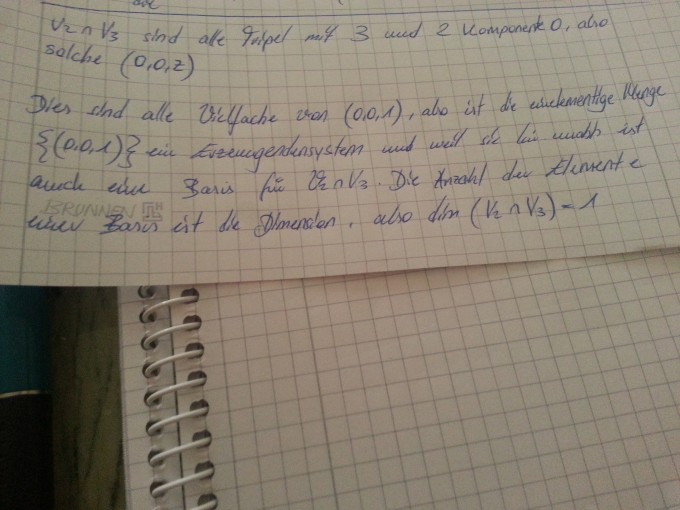 V₂ ∩ V₃ sind alle Tripel mit 3 und 2 Komponente 0, also
solche (0,0,z)
Dies sind alle Vielfache von (0,0,1), also ist die einelementige Menge
{(0,0,1)} ein Erzeugendensystem und weil sie lin unabh ist
auch eine Basis für V₂ ∩ V₃. Die Anzahl der Elemente
BRUNNEN
einer Basis ist die Dimension, also dim (V₂ ∩ V₃) = 1